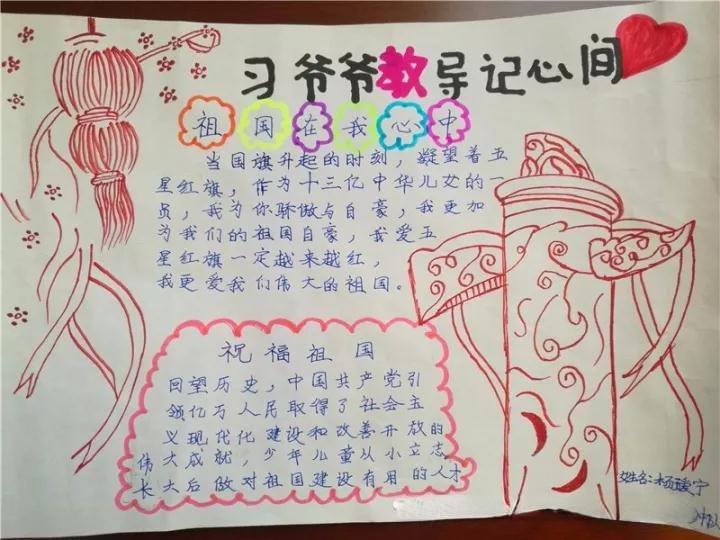 习爷爷教导记心间
祖国在我心中
当国旗升起的时刻，凝望着五
星红旗，作为十三亿中华儿女的一
员，我为你骄傲与自豪，我更加
为我们的祖国自豪，我爱五
星红旗一定越来越红，
我更爱我们伟大的祖国。
祝福祖国
回望历史，中国共产党引
领亿万人民取得了社会主
义现代化建设和改善开放的
伟大成就，少年儿童从小立志
长大后做对祖国建设有用的人才
姓名：杨